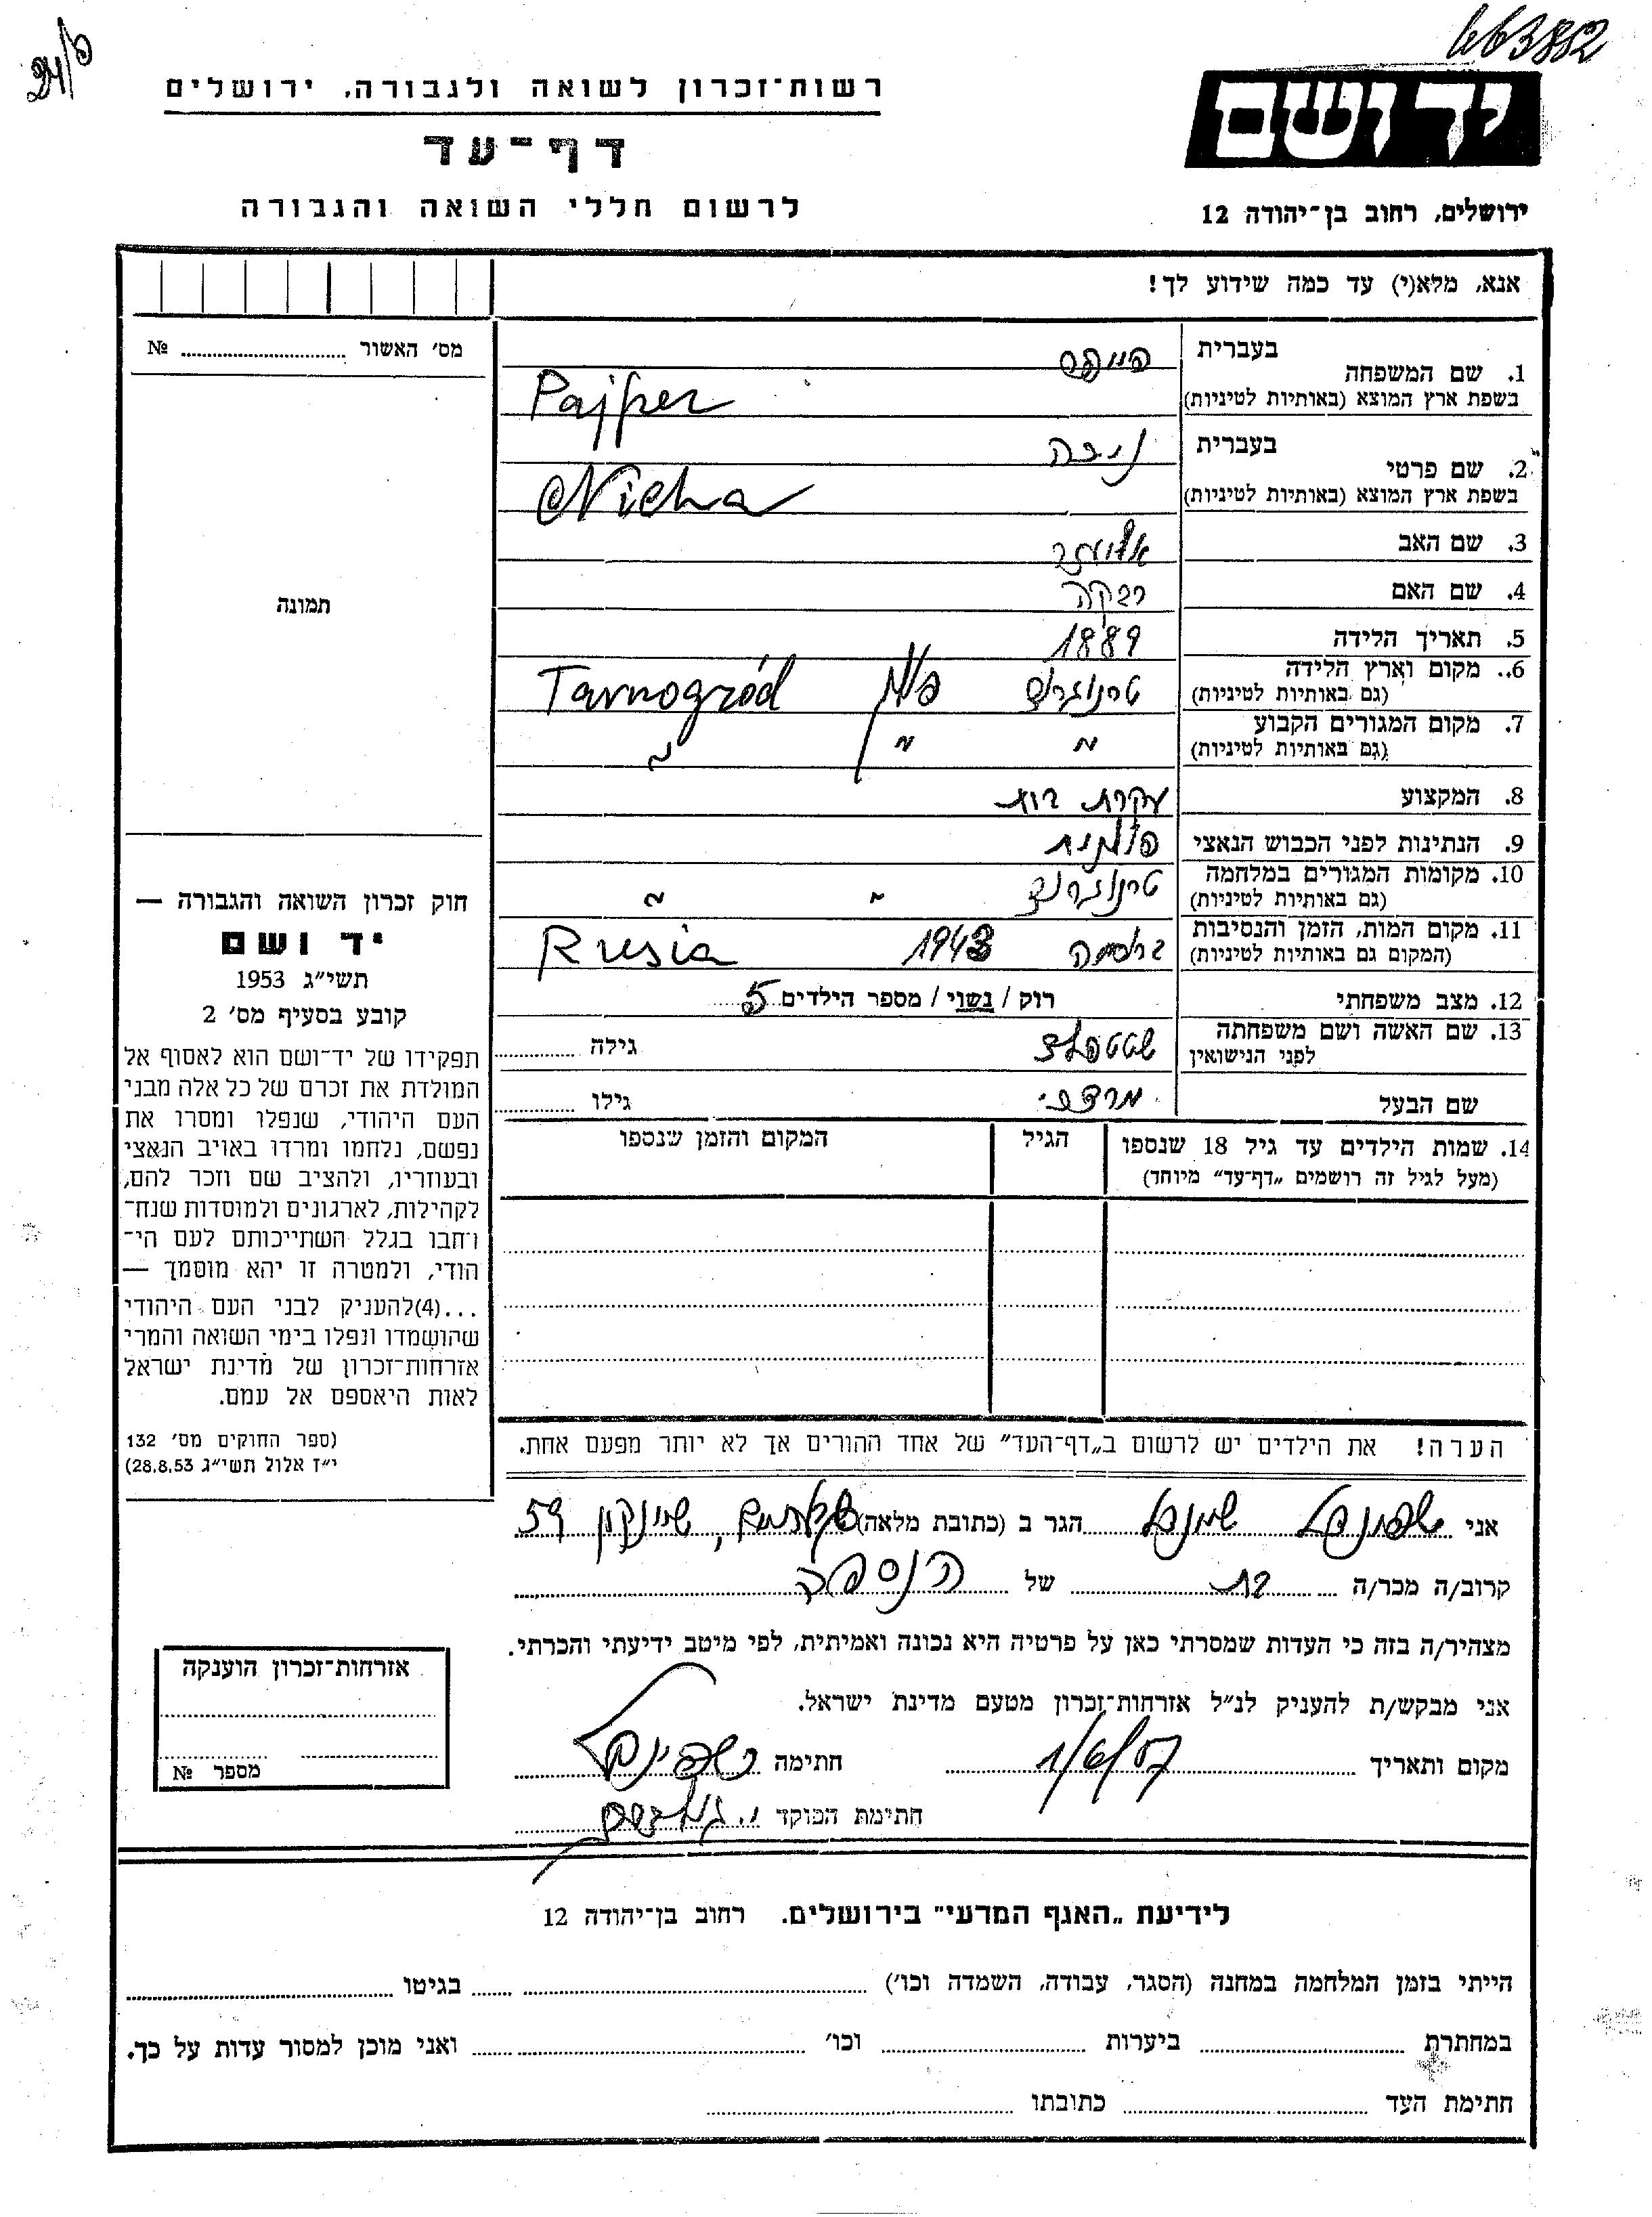 463882
24/6
יד ושם
ירושלים, רחוב בן־יהודה 12
רשות־זכרון לשואה ולגבורה, ירושלים
דף־עד
לרשום חללי השואה והגבורה
אנא, מלא(י) עד כמה שידוע לך!
מס׳ האשור № ..........
תמונה
1. שם המשפחה
בעברית פייפר
בשפת ארץ המוצא (באותיות לטיניות) Pajper
2. שם פרטי
בעברית ניכה
בשפת ארץ המוצא (באותיות לטיניות) Nicha
3. שם האב אליעזר
4. שם האם רבקה
5. תאריך הלידה 1889
6. מקום וארץ הלידה
(גם באותיות לטיניות) טרנוגרוד Tarnogród
7. מקום המגורים הקבוע
(גם באותיות לטיניות) " " "
8. המקצוע עקרת בית
9. הנתינות לפני הכבוש הנאצי פולנית
10. מקומות המגורים במלחמה
(גם באותיות לטיניות) טרנוגרוד " "
11. מקום המות, הזמן והנסיבות
(המקום גם באותיות לטיניות) ברוסיה 1943 Rusia
12. מצב משפחתי רוק / נשוי / מספר הילדים 5
13. שם האשה ושם משפחתה
לפני הנישואין גילה ..........
שם הבעל מרדכי גילו ..........
14. שמות הילדים עד גיל 18 שנספו
(מעל לגיל זה רושמים „דף־עד” מיוחד)
הגיל
המקום והזמן שנספו
הערה! את הילדים יש לרשום ב„דף־העד” של אחד ההורים אך לא יותר מפעם אחת.
חוק זכרון השואה והגבורה —
יד ושם
תשי״ג 1953
קובע בסעיף מס׳ 2
תפקידו של יד־ושם הוא לאסוף אל
המולדת את זכרם של כל אלה מבני
העם היהודי, שנפלו ומסרו את
נפשם, נלחמו ומרדו באויב הנאצי
ובעוזריו, ולהציב שם וזכר להם,
לקהילות, לארגונים ולמוסדות שנח־
רחבו בגלל השתייכותם לעם הי־
הודי, ולמטרה זו יהא מוסמך —
...(4)להעניק לבני העם היהודי
שהושמדו ונפלו בימי השואה והמרי
אזרחות־זכרון של מדינת ישראל
לאות היאספם אל עמם.
(ספר החוקים מס׳ 132
י״ז אלול תשי״ג 28.8.53)
אני הגר ב (כתובת מלאה) שינקין 59
קרוב/ה מכר/ה בת של הנספה
מצהיר/ה בזה כי העדות שמסרתי כאן על פרטיה היא נכונה ואמיתית, לפי מיטב ידיעתי והכרתי.
אני מבקש/ת להעניק לנ״ל אזרחות־זכרון מטעם מדינת ישראל.
מקום ותאריך 1/6/57 חתימה
חתימת הפוקד
אזרחות־זכרון הוענקה
מספר №
לידיעת „האגף המדעי” בירושלים. רחוב בן־יהודה 12
הייתי בזמן המלחמה במחנה (הסגר, עבודה, השמדה וכו׳) .......... בגיטו ..........
במחתרת .......... ביערות .......... וכו׳ .......... ואני מוכן למסור עדות על כך.
חתימת העד .......... כתובתו ..........